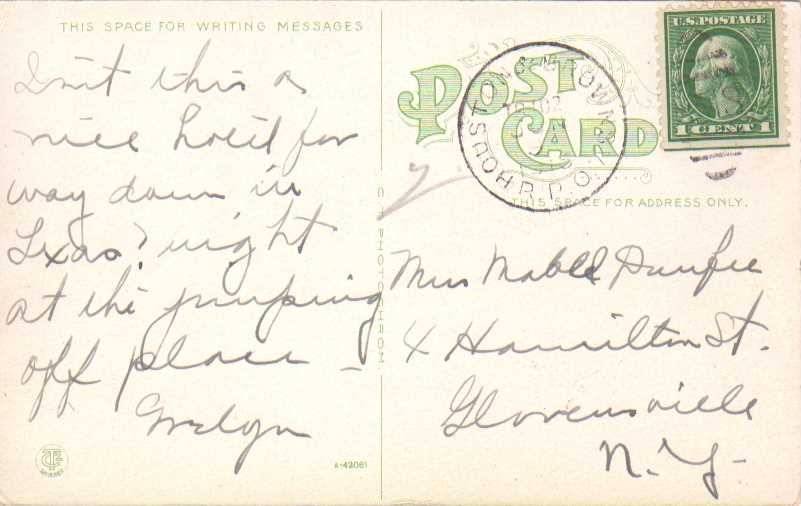 THIS SPACE FOR WRITING MESSAGES
Isn't this a
nice hotel for
way down in
Texas? right
at the jumping
off place –
Evelyn
A-42061
C.T. PHOTOCHROM
POST
CARD
U.S. POSTAGE
1 CENT 1
HOUST. & BROWN
R.P.O.
THIS SPACE FOR ADDRESS ONLY.
Miss Mabel Durfee
4 Hamilton St.
Gloversville
N.Y.